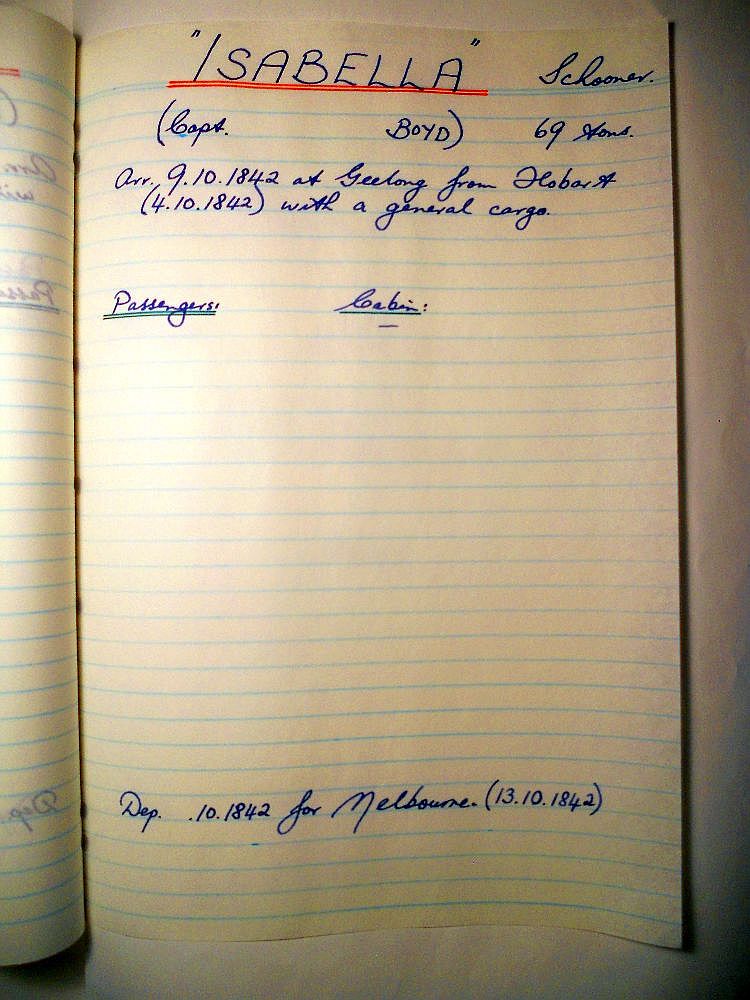 "ISABELLA" Schooner.
(Capt. BOYD) 69 tons.
Arr. 9.10.1842 at Geelong from Hobart
(4.10.1842) with a general cargo.
Passengers: Cabin:
—
Dep. .10.1842 for Melbourne. (13.10.1842)